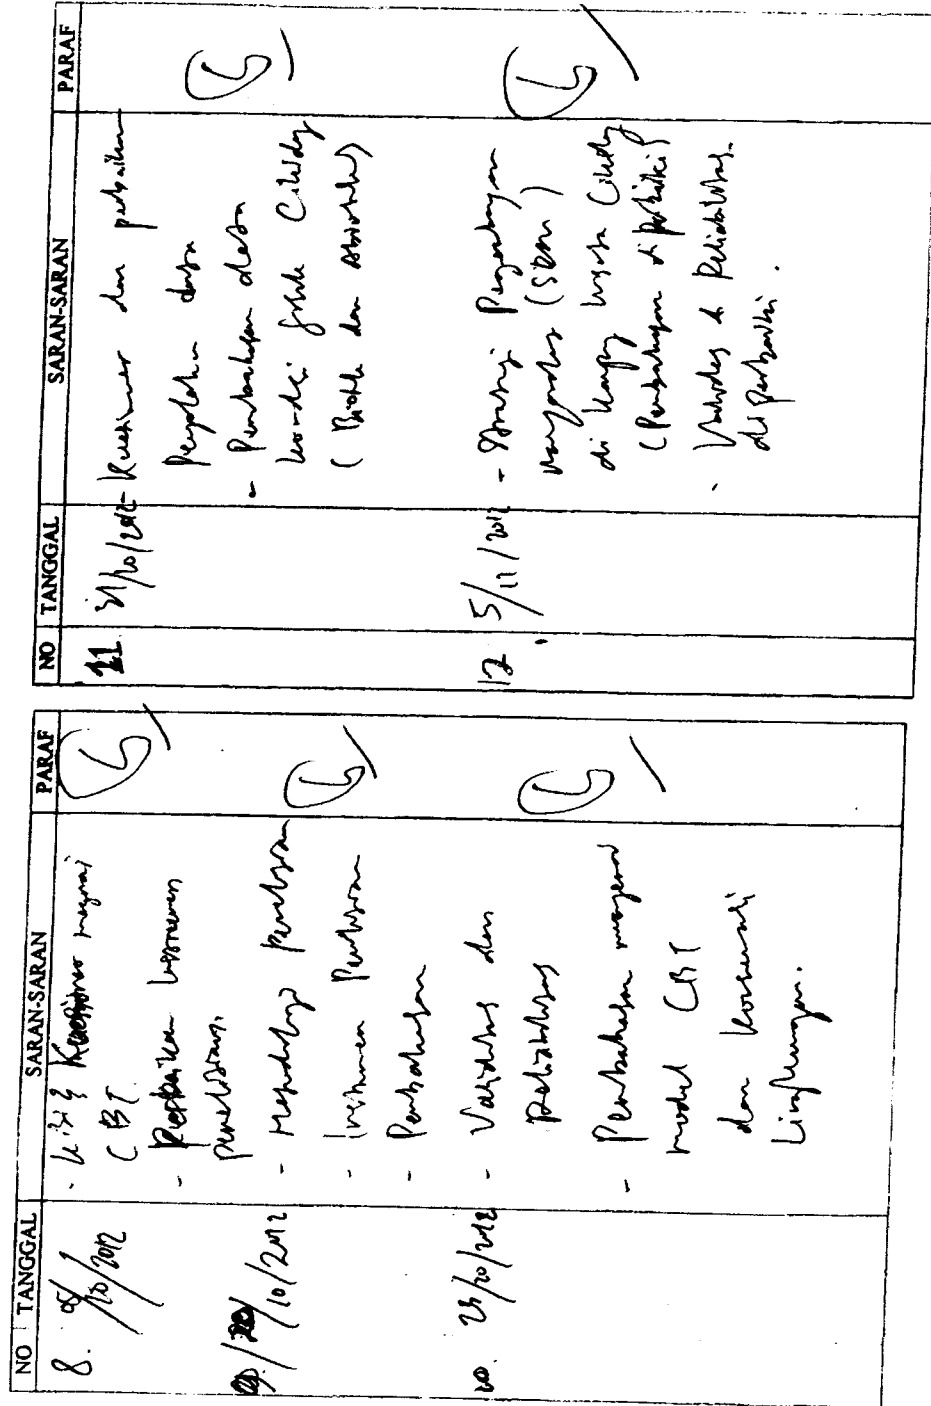 NO TANGGAL SARAN-SARAN PARAF
8. 05/10/2012 - Kisi2 Kuesioner mengenai
CBT.
- Perbaikan Instrumen
penelitian.
/10/2012 - Metodologi Penelitian
- Instrumen Penelitian
- Pembahasan
10. /10/2012 - Validitas dan
Reliabilitas
- Pembahasan mengenai
model CBT
dan konservasi
Lingkungan.
NO TANGGAL SARAN-SARAN PARAF
11. 31/10/2012 - Kuesioner dan perbaikan
Pengolahan data
- Pembahasan data
kondisi Ciwidey
(Biotik dan Abiotik)
12. 5/11/2012 - Strategi Pengembangan
(SDM)
di Ciwidey
(Pembahasan diperbaiki)
- Validitas & Reliabilitas
diperbaiki.